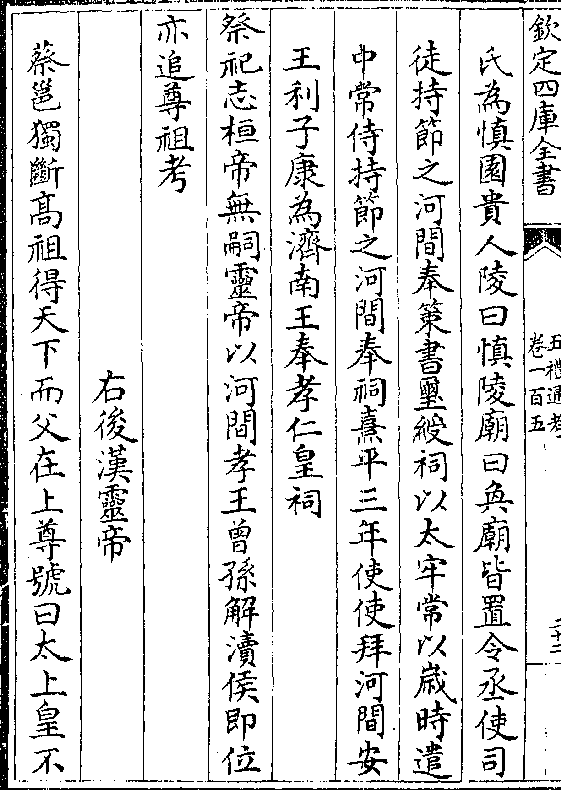 欽定四庫全書
五禮通考
卷一百五
二十二
氏為慎園貴人陵曰慎陵廟曰奐廟皆置令丞使司
徒持節之河間奉策書璽綬祠以太牢常以歲時遣
中常侍持節之河間奉祠熹平三年使使拜河間安
王利子康為濟南王奉孝仁皇祠
祭祀志桓帝無嗣靈帝以河間孝王曾孫解瀆侯即位
亦追尊祖考
右後漢靈帝
蔡邕獨斷高祖得天下而父在上尊號曰太上皇不